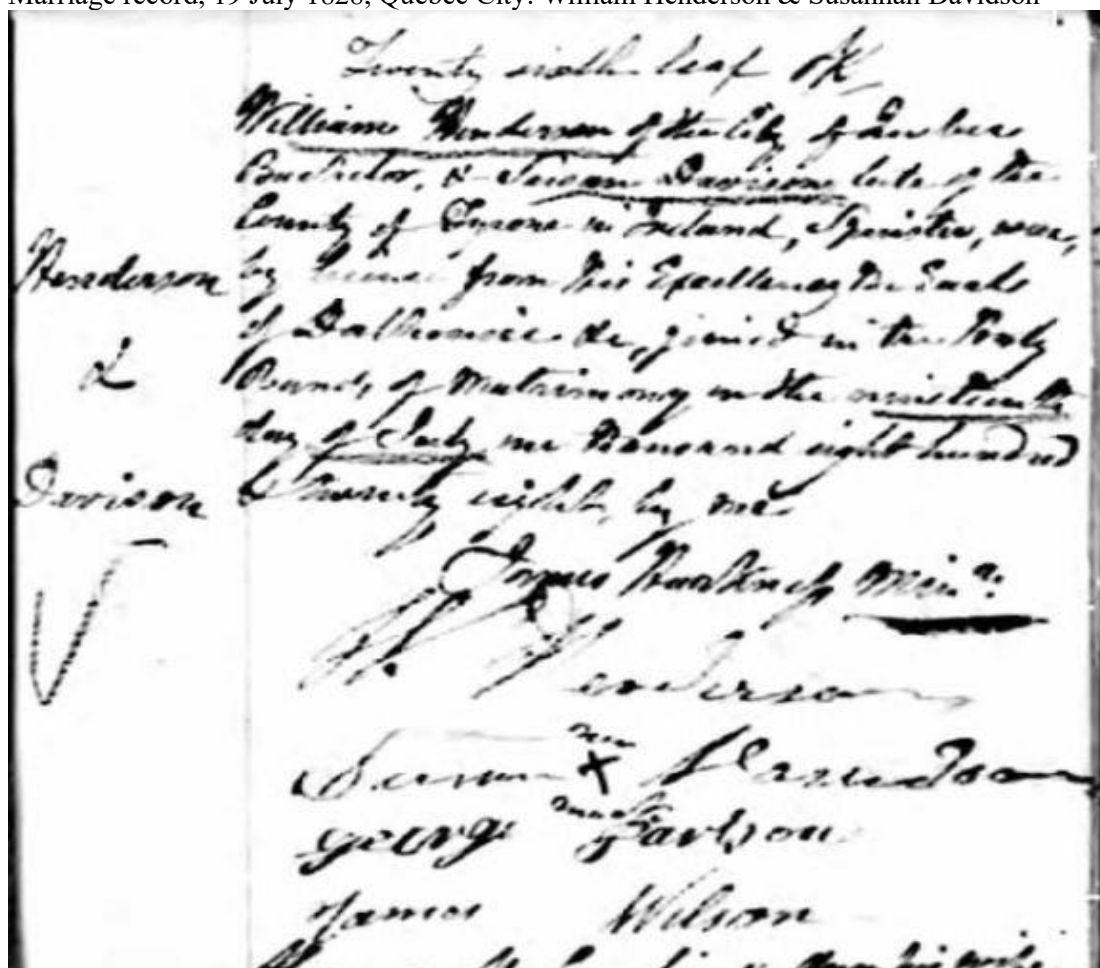 Marriage record, 19 July 1828, Quebec City: William Henderson & Susannah Davidson
Twenty sixth leaf
William Henderson of the City of Quebec
Bachelor, & Susan Davison late of the
County of Tyrone in Ireland, Spinster, were,
by license from His Excellency the Earl
of Dalhousie &c, joined in the Holy
Bands of Matrimony on the nineteenth
day of July one thousand eight hundred
& twenty eight, by me
Henderson
&
Davison
James Harkness Minr.
W. Henderson
her
Susan X Davidson
mark
George
James Wilson